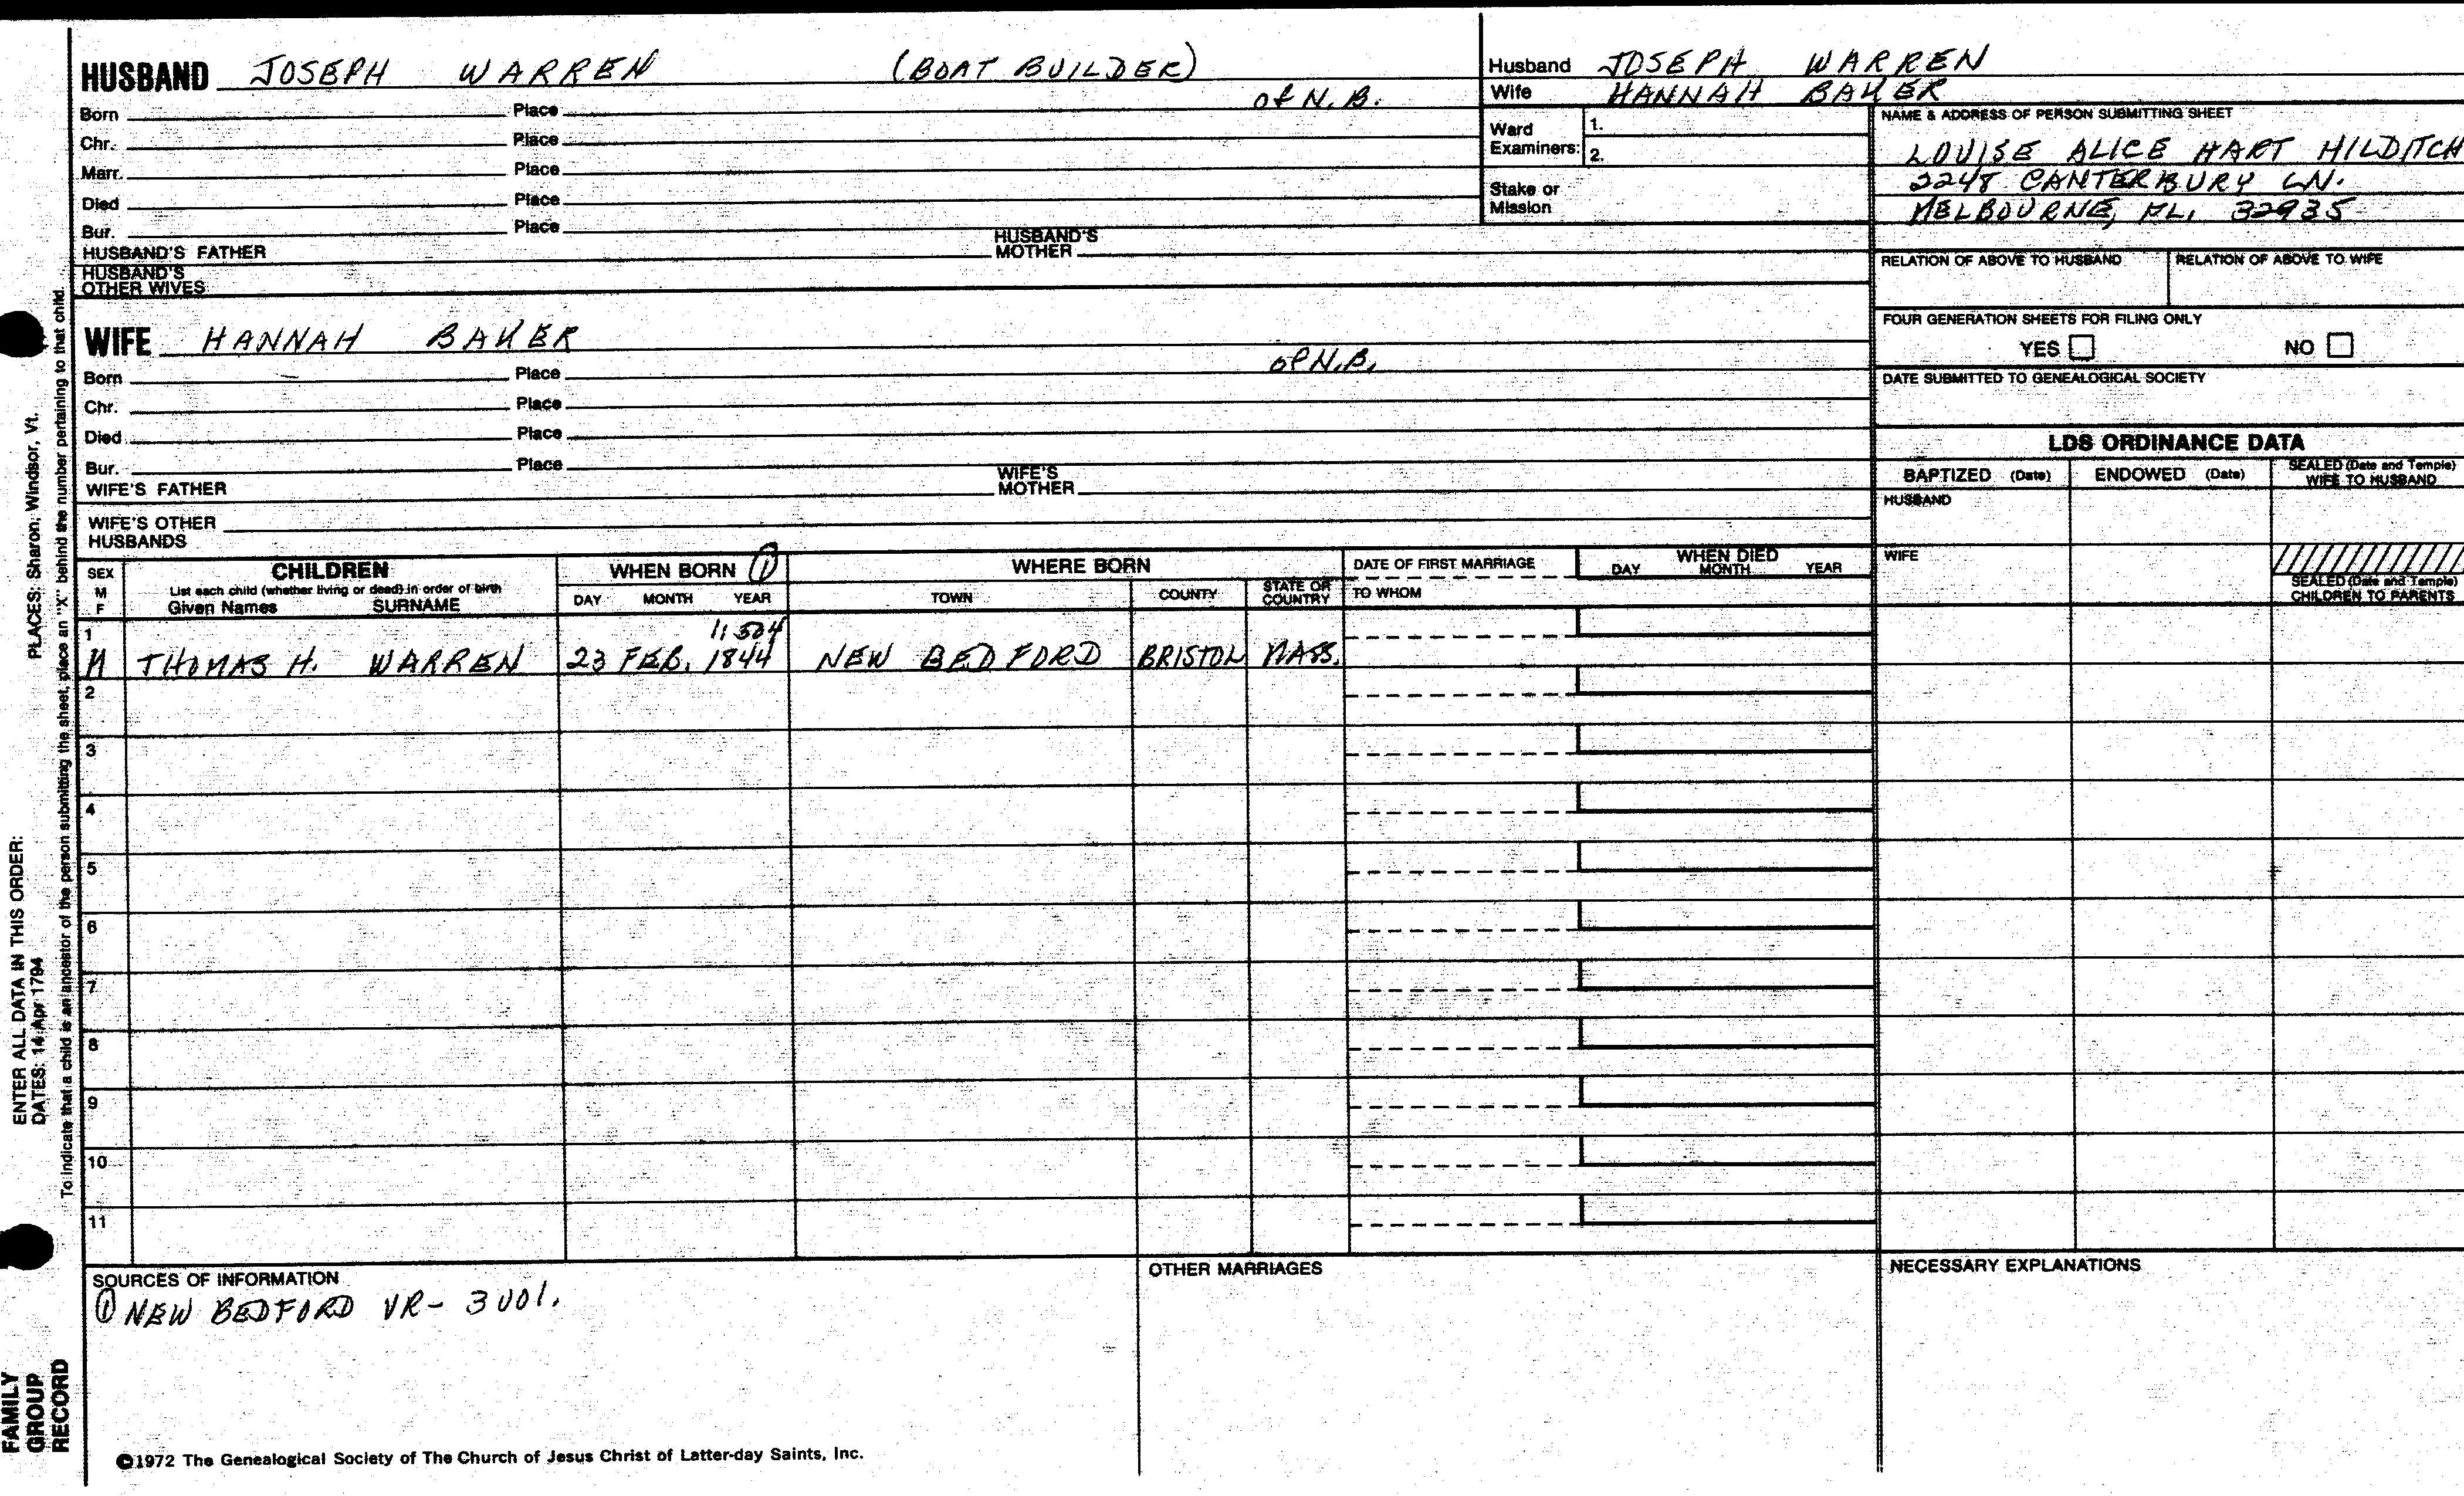 HUSBAND JOSEPH WARREN (BOAT BUILDER)
Born Place of N.B.
Chr. Place
Marr. Place
Died Place
Bur. Place
HUSBAND'S FATHER HUSBAND'S MOTHER
HUSBAND'S OTHER WIVES
WIFE HANNAH BAKER
Born Place of N.B.
Chr. Place
Died Place
Bur. Place
WIFE'S FATHER WIFE'S MOTHER
WIFE'S OTHER HUSBANDS
Husband JOSEPH WARREN
Wife HANNAH BAKER
Ward Examiners: 1.
2.
Stake or Mission
NAME & ADDRESS OF PERSON SUBMITTING SHEET
LOUISE ALICE HART HILDITCH
2248 CANTERBURY LN.
MELBOURNE, FL. 32935
RELATION OF ABOVE TO HUSBAND RELATION OF ABOVE TO WIFE
FOUR GENERATION SHEETS FOR FILING ONLY
YES NO
DATE SUBMITTED TO GENEALOGICAL SOCIETY
LDS ORDINANCE DATA
BAPTIZED (Date) ENDOWED (Date) SEALED (Date and Temple) WIFE TO HUSBAND
HUSBAND
WIFE
SEALED (Date and Temple) CHILDREN TO PARENTS
SEX M F CHILDREN WHEN BORN ① WHERE BORN DATE OF FIRST MARRIAGE WHEN DIED
List each child (whether living or dead) in order of birth
Given Names SURNAME DAY MONTH YEAR TOWN COUNTY STATE OR COUNTRY TO WHOM DAY MONTH YEAR
1 11:504
M THOMAS H. WARREN 23 FEB. 1844 NEW BEDFORD BRISTOL MASS.
2
3
4
5
6
7
8
9
10
11
SOURCES OF INFORMATION
① NEW BEDFORD VR- 3 VOL.
OTHER MARRIAGES
NECESSARY EXPLANATIONS
©1972 The Genealogical Society of The Church of Jesus Christ of Latter-day Saints, Inc.
FAMILY GROUP RECORD
ENTER ALL DATA IN THIS ORDER:
DATES: 14 Apr 1794 PLACES: Sharon, Windsor, Vt.
To indicate that a child is an ancestor of the person submitting the sheet, place an "X" behind the number pertaining to that child.